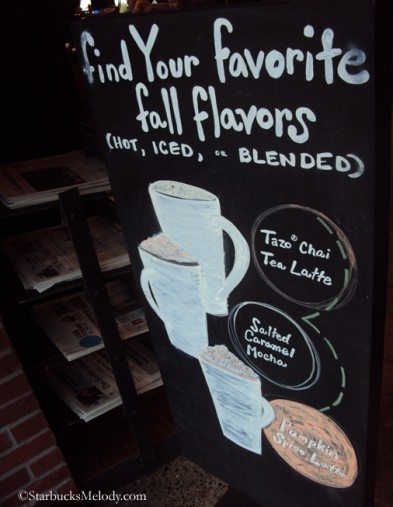 find Your favorite
fall flavors
(HOT, ICED, or BLENDED)
Tazo® Chai
Tea Latte
Salted
Caramel
Mocha
Pumpkin
Spice Latte
©StarbucksMelody.com